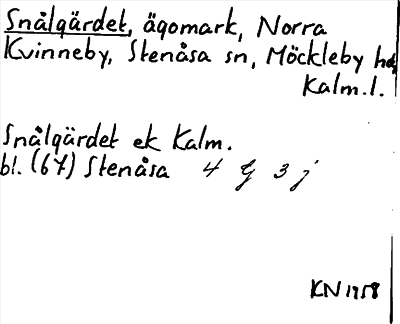 Snålgärdet, ägomark, Norra
Kvinneby, Stenåsa sn, Möckleby hd,
Kalm.l.
Snålgärdet ek Kalm.
bl. (67) Stenåsa 4 G 3 j
KN 1958